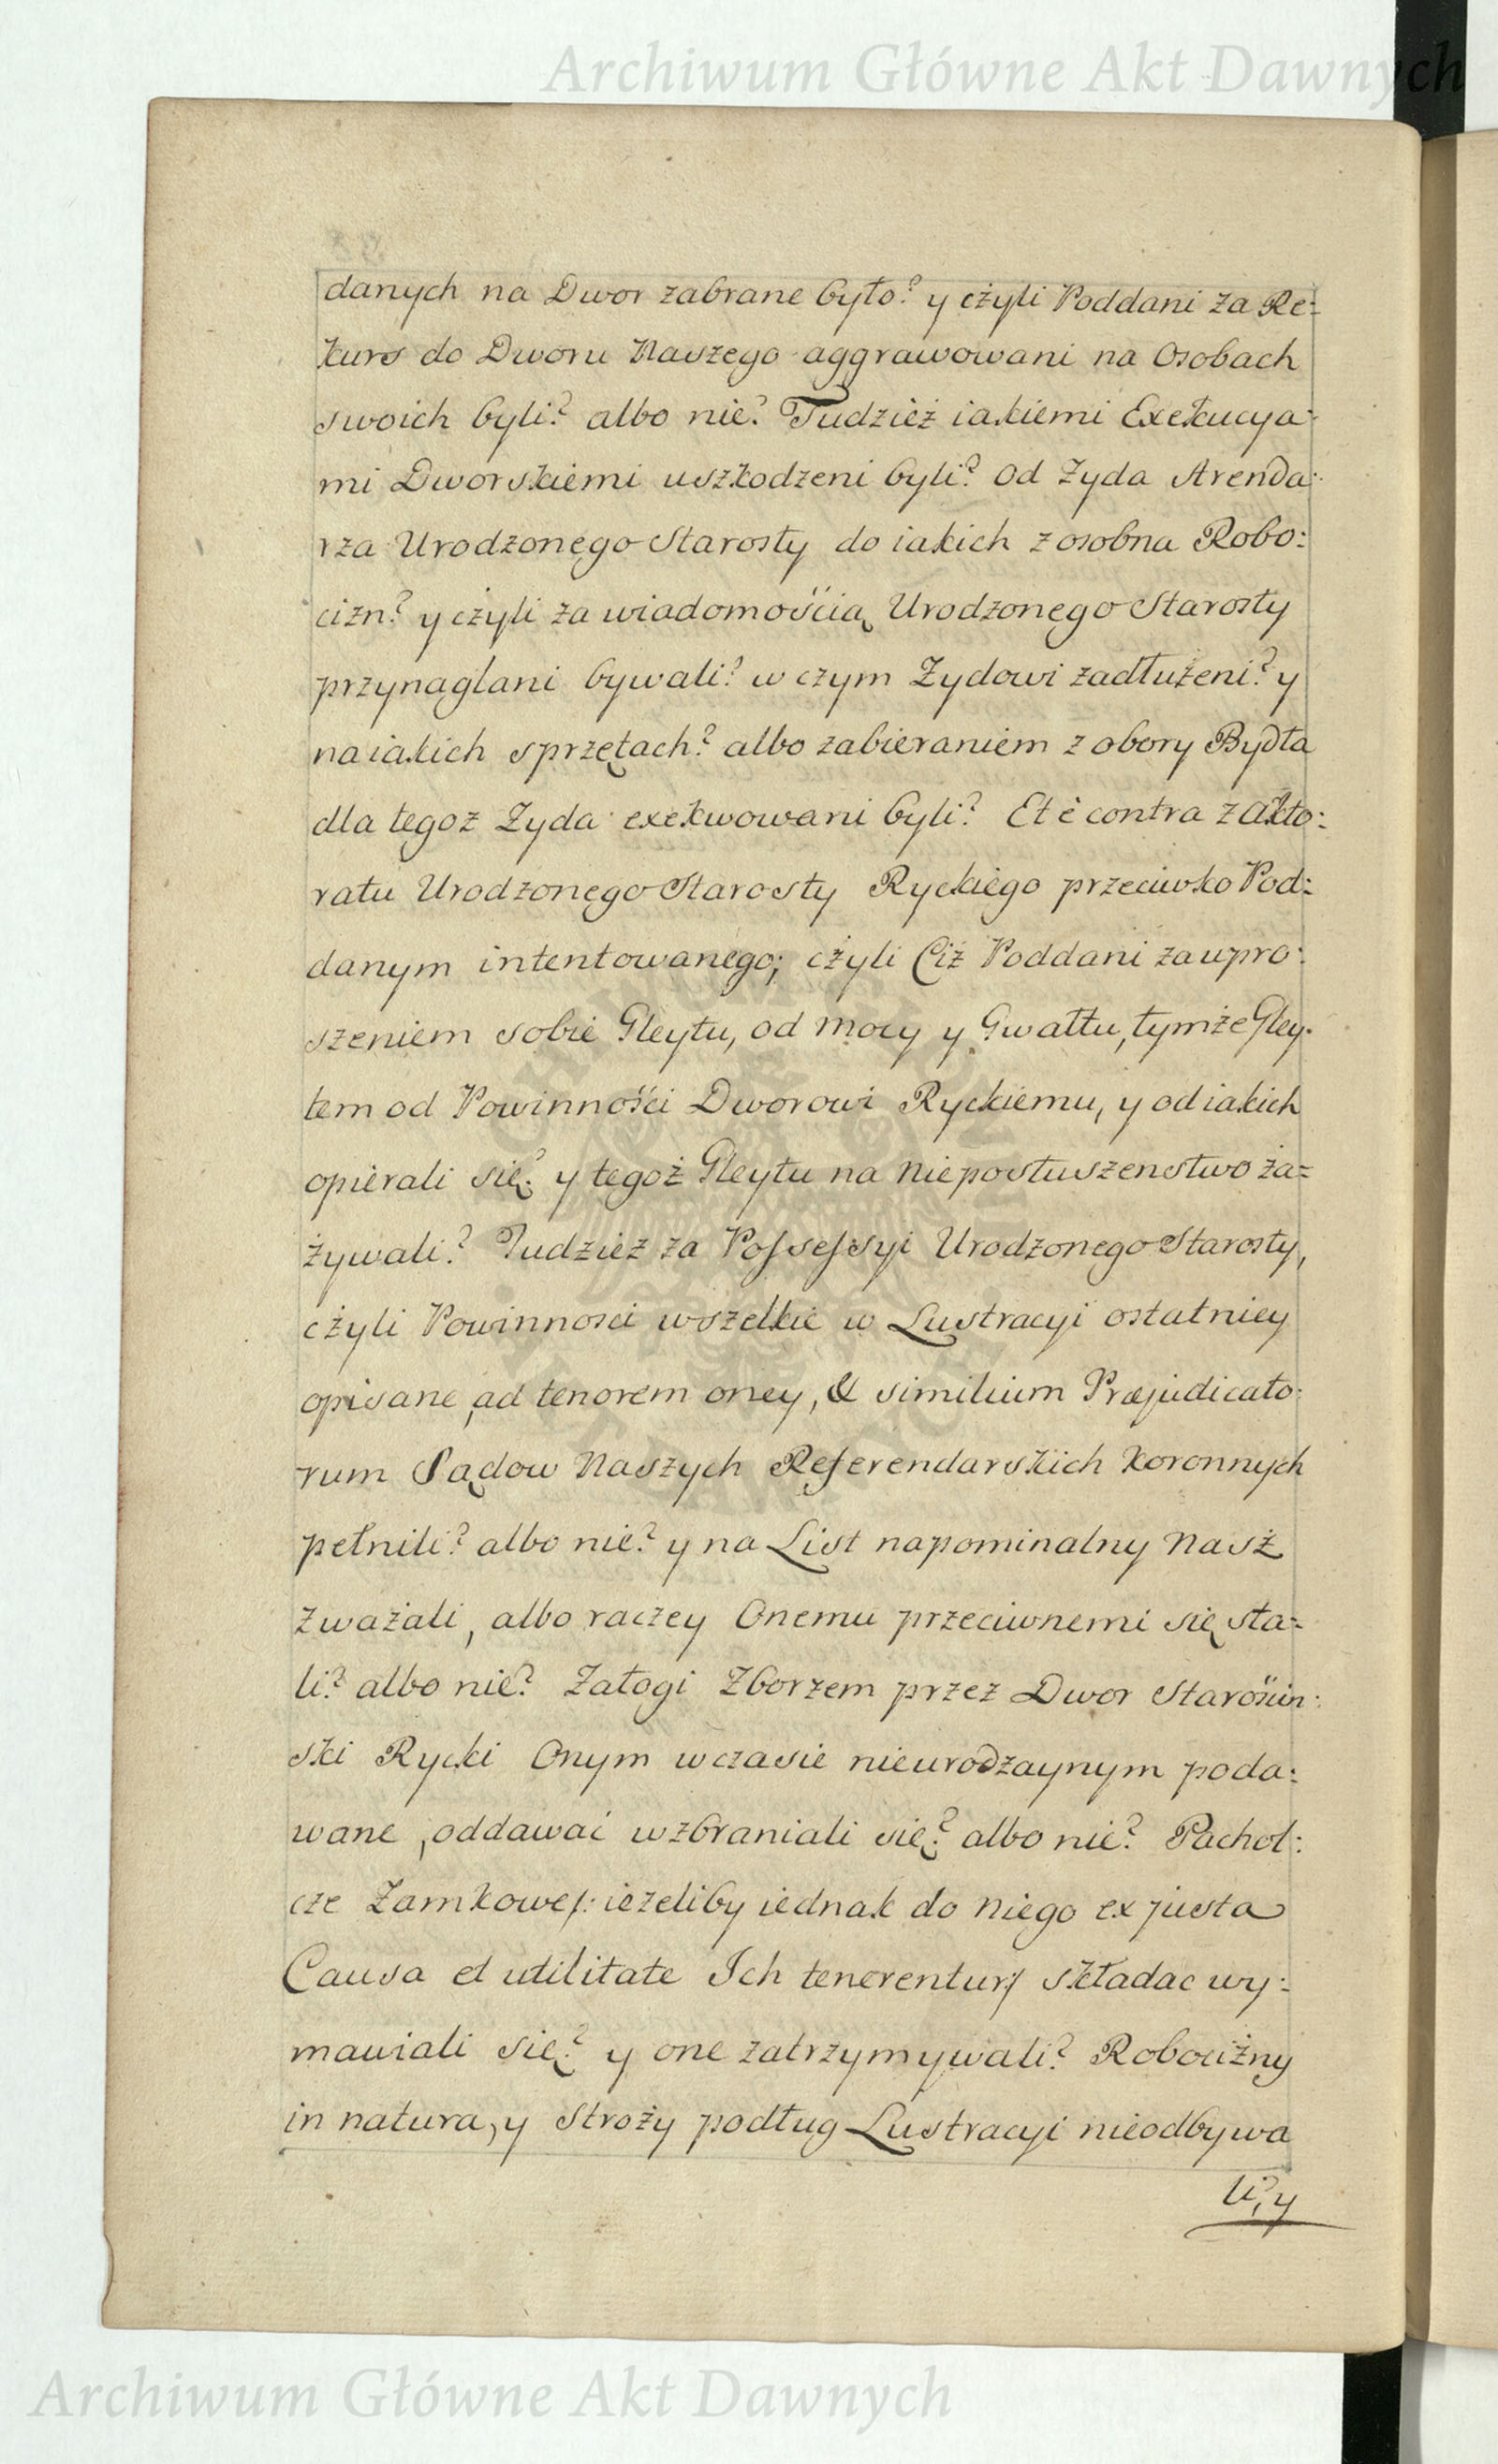 Archiwum Główne Akt Dawnych
danych na Dwor zabrane było? y cżyli Poddani za Re:
kurs do Dworu Naszego aggrawowani na Osobach
swoich byli? albo nie? Tudzież iakiemi Exekucya:
mi Dworskiemi uszkodzeni byli? od Żyda Arenda:
rza Urodzonego Starosty do iakich z osobna Robo:
cizn? y cżyli za wiadomością Urodzonego Starosty
przynaglani bywali? w czym Żydowi zadłużeni? y
na iakich sprzętach? albo zabieraniem z obory Bydła
dla tegoż Żyda exekwowani byli? Et è contra z Akto:
ratu Urodzonego Starosty Ryckiego przeciwko Pod:
danym intentowanego; cżyli Ciż Poddani za upro:
szeniem sobie Gleytu, od mocy y Gwałtu, tymże Gley:
tem od Powinności Dworowi Ryckiemu, y od iakich
opierali się? y tegoż Gleytu na nieposłuszenstwo za:
żywali? Tudzież za Possessyi Urodzonego Starosty,
cżyli Powinnosci wszelkie w Lustracyi ostatniey
opisane, ad tenorem oney, & similium Præjudicato:
rum Sądow Naszych Referendarskich Koronnych
pełnili? albo nie? y na List napominalny Nasz
zważali, albo raczey Onemu przeciwnemi się sta:
li? albo nie? Załogi Zborzem przez Dwor Starościn:
ski Rycki Onym w czasie nieurodzaynym poda:
wane, oddawać wzbraniali się? albo nie? Pachoł:
cze Zamkowe/: ieżeliby iednak do niego ex justa
Causa et utilitate Ich tenerentur:/ składac wy:
mawiali się? y one zatrzymywali? Robocizny
in natura, y Stroży podług Lustracyi nieodbywa
li?, y
Archiwum Główne Akt Dawnych